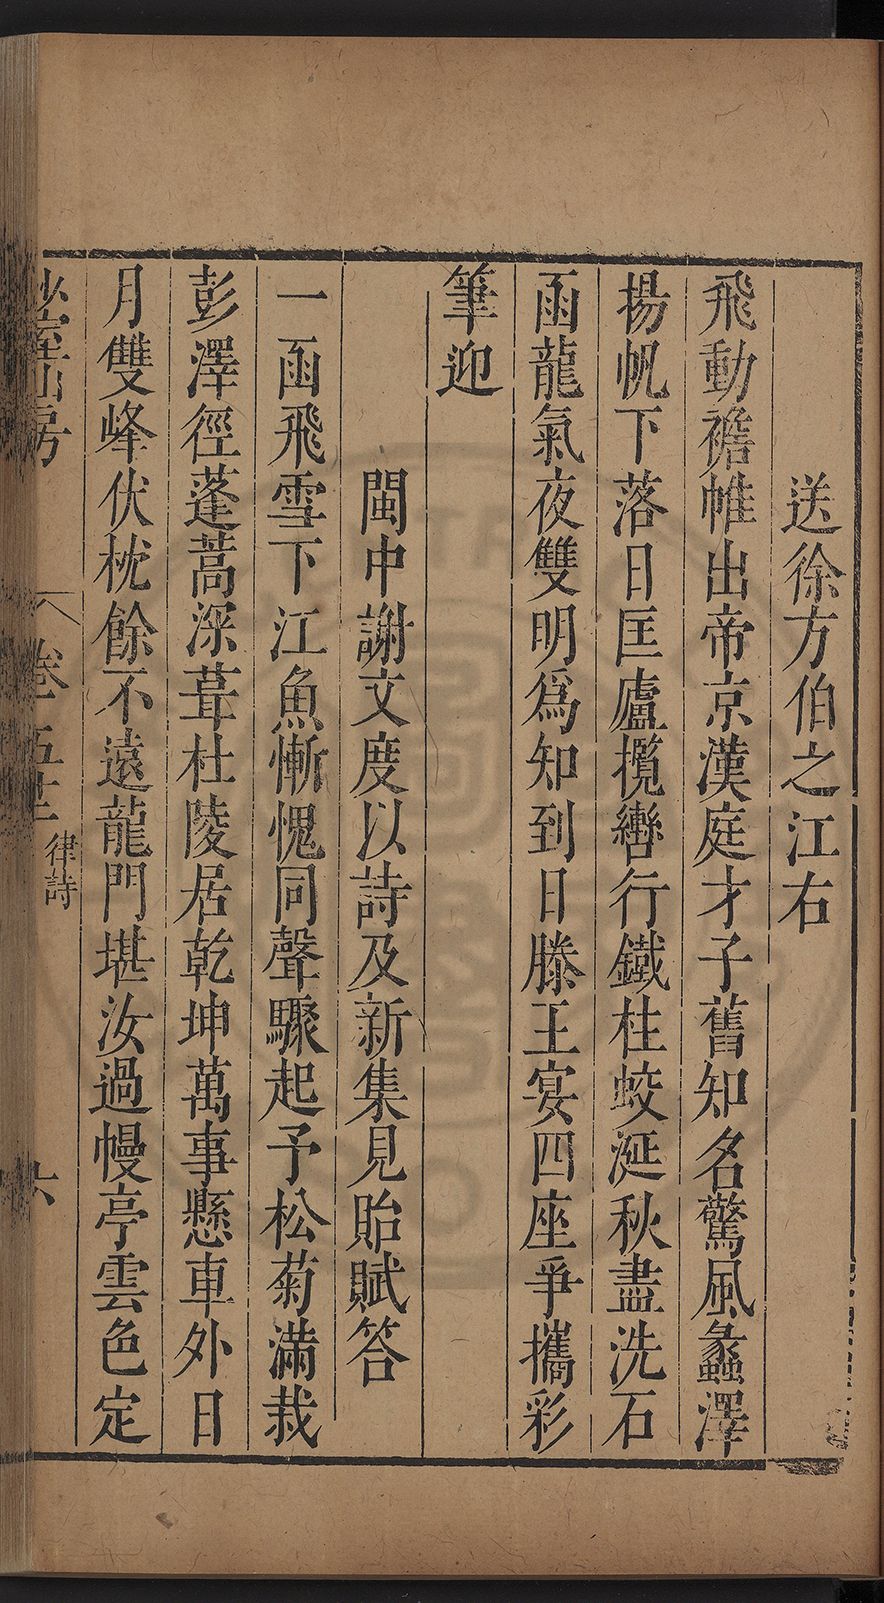 送徐方伯之江右
飛動襜帷出帝京漢庭才子舊知名驚風蠡澤
揚帆下落日匡廬攬轡行鐵柱蛟涎秋盡洗石
函龍氣夜雙明爲知到日滕王宴四座爭攜彩
筆迎
閩中謝文度以詩及新集見貽賦答
一函飛雪下江魚慚愧同聲驟起予松菊滿栽
彭澤徑蓬蒿深葺杜陵居乾坤萬事懸車外日
月雙峰伏枕餘不遠龍門堪汝過幔亭雲色定
房 卷五十 律詩 六